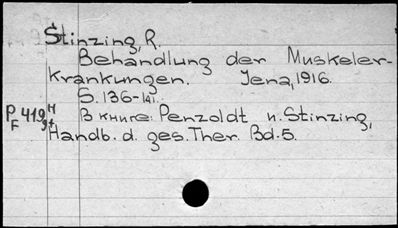 Stinzing, R.
Behandlung der Muskeler-
krankungen. Jena, 1916.
S. 136-141.
В книге: Penzoldt u. Stinzing,
Handb. d. ges. Ther. Bd. 5.
P 419
F